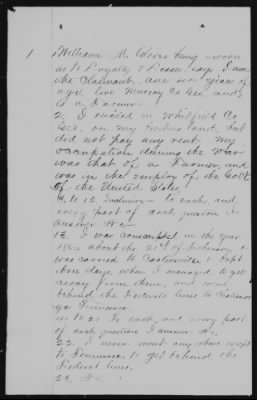 1 William M. being sworn
as to Loyalty & Losses, says I am
the Claimant, am years of
age, live Murray Co Geo, and
is a Farmer
2. I resided in Whitfield Co
Geo, on my land, but
did not pay any rent. My
occupation during the War
was that of a Farmer, and
was in the employ of the Govt
of the United States.
to 12. Inclusive - to each and
every part of each question I
answer No -
13. I was conscripted in the year
1864 about the 21st of February, I
was carried to Cartersville & kept
three days, when I managed to get
away from them, and went
behind the Federal lines to
Tennessee
to 21. To each and every part
of each question I answer No.
22. I never went any where except
to Tennessee to get behind the
Federal lines.
23. No.